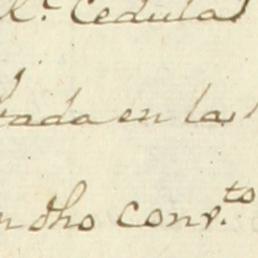 Rˢ. Cedulas
rada en las
n dho conv.ᵗᵒ